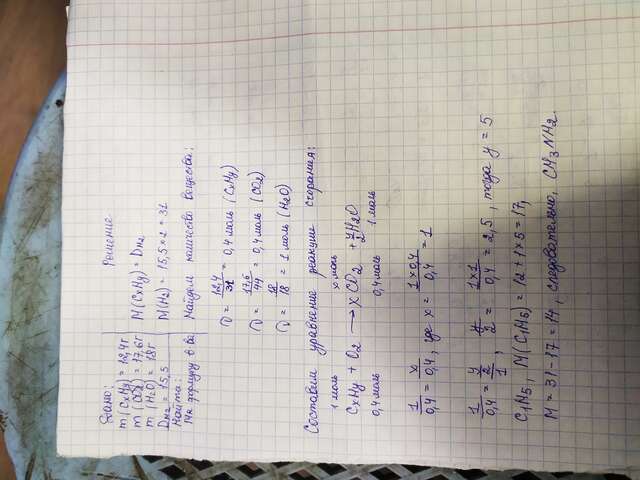 Дано:
m(CxHy) = 12,4г
m(CO2) = 17,6г
m(H2O) = 18г
DH2 = 15,5
Найти:
формулу в-ва
Решение
M(CxHy) = DH2
M(H2) = 15,5 × 2 = 31
Найдем количество вещества:
ν = 12,4/31 = 0,4 моль (CxHy)
ν = 17,6/44 = 0,4 моль (CO2)
ν = 18/18 = 1 моль (H2O)
Составим уравнение реакции сгорания:
1 моль x моль
CxHy + O2 → xCO2 + y/2H2O
0,4 моль 0,4 моль 1 моль
1/0,4 = x/0,4, где x = 1×0,4/0,4 = 1
1/0,4 = y/2/1, y/2 = 1×1/0,4 = 2,5, тогда y = 5
C1H5, M(C1H5) = 12 + 1×5 = 17,
M = 31 - 17 = 14, следовательно, CH3NH2.